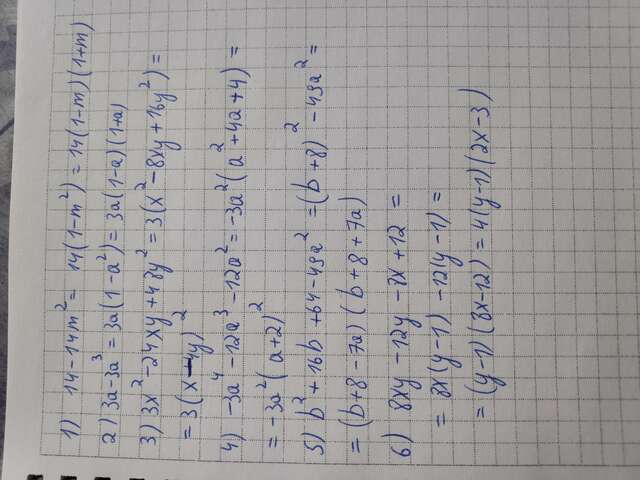 1) 14-14m² = 14(1-m²) = 14(1-m)(1+m)
2) 3a-3a³ = 3a(1-a²) = 3a(1-a)(1+a)
3) 3x²-24xy+48y² = 3(x²-8xy+16y²) =
= 3(x-4y)²
4) -3a⁴-12a³-12a² = -3a²(a²+4a+4) =
= -3a²(a+2)²
5) b²+16b+64-49a² = (b+8)²-49a² =
= (b+8-7a)(b+8+7a)
6) 8xy-12y-8x+12 =
= 8x(y-1)-12(y-1) =
= (y-1)(8x-12) = 4(y-1)(2x-3)